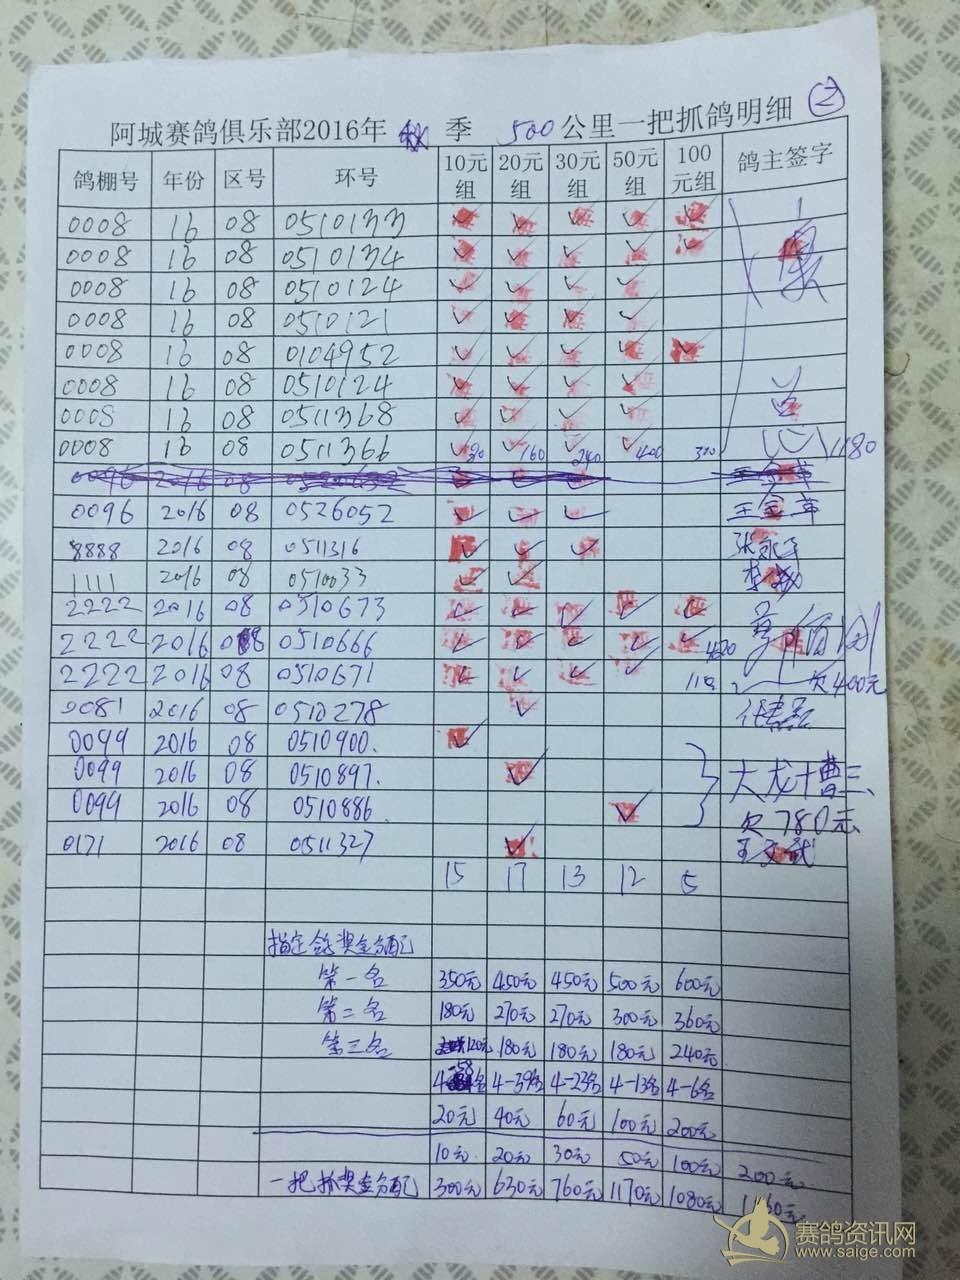 ②
阿城赛鸽俱乐部2016年 秋 季 500公里一把抓鸽明细
鸽棚号 年份 区号 环号 10元组 20元组 30元组 50元组 100元组 鸽主签字
0008 16 08 0510133 ✓ ✓ ✓ ✓ ✓
0008 16 08 0510134 ✓ ✓ ✓ ✓ ✓
0008 16 08 0510124 ✓ ✓ ✓ ✓
0008 16 08 0510121 ✓ ✓ ✓ ✓
0008 16 08 0104952 ✓ ✓ ✓ ✓ ✓
0008 16 08 0510124 ✓ ✓ ✓ ✓
0008 16 08 0511368 ✓ ✓ ✓ ✓
0008 16 08 0511366 ✓ ✓ 160 ✓ 240 ✓ 400 300 1180
0096 2016 08
0096 2016 08 0526052 ✓ ✓ ✓ 王金華
8888 2016 08 0511316 ✓ ✓ ✓
1111 2016 08 0510033 ✓ ✓
2222 2016 08 0510673 ✓ ✓ ✓ ✓ ✓
2222 2016 08 0510666 ✓ ✓ ✓ ✓ ✓
2222 2016 08 0510671 ✓ ✓ ✓ ✓ 欠400元
0081 2016 08 0510278 ✓
0099 2016 08 0510900. ✓
0099 2016 08 0510897. ✓ 大龙十曹三、
0099 2016 08 0510886 ✓ 欠780元
0171 2016 08 0511327 ✓ 王文武
15 17 13 12 5
指定鸽奖金分配
第一名 350元 450元 450元 500元 600元
第二名 180元 270元 270元 300元 360元
第三名 120元 180元 180元 180元 240元
4-58名 4-39名 4-23名 4-13名 4-6名
20元 40元 60元 100元 200元
10元. 20元 30元 50元 100元 200元
一把抓奖金分配 300元 630元 760元 1170元 1080元
赛鸽资讯网
www.saige.com